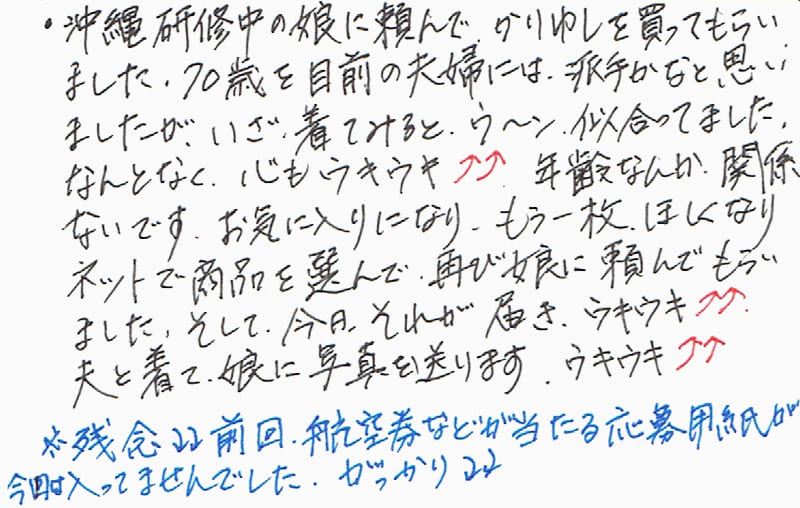 ・沖縄研修中の娘に頼んで、かりゆしを買ってもらい
ました。70歳を目前の夫婦には、派手かなと、思い
ましたが、いざ、着てみると、ウ～ン、似合ってました。
なんとなく、心もウキウキ↗↗。年齢なんか、関係
ないです。お気に入りになり、もう一枚、ほしくなり
ネットで商品を選んで、再び娘に頼んでもらい
ました。そして、今日、それが届き、ウキウキ↗↗。
夫と着て、娘に写真を送ります。ウキウキ↗↗
※残念↓↓前回、航空券などが当たる応募用紙が
今回は入ってませんでした。がっかり↓↓